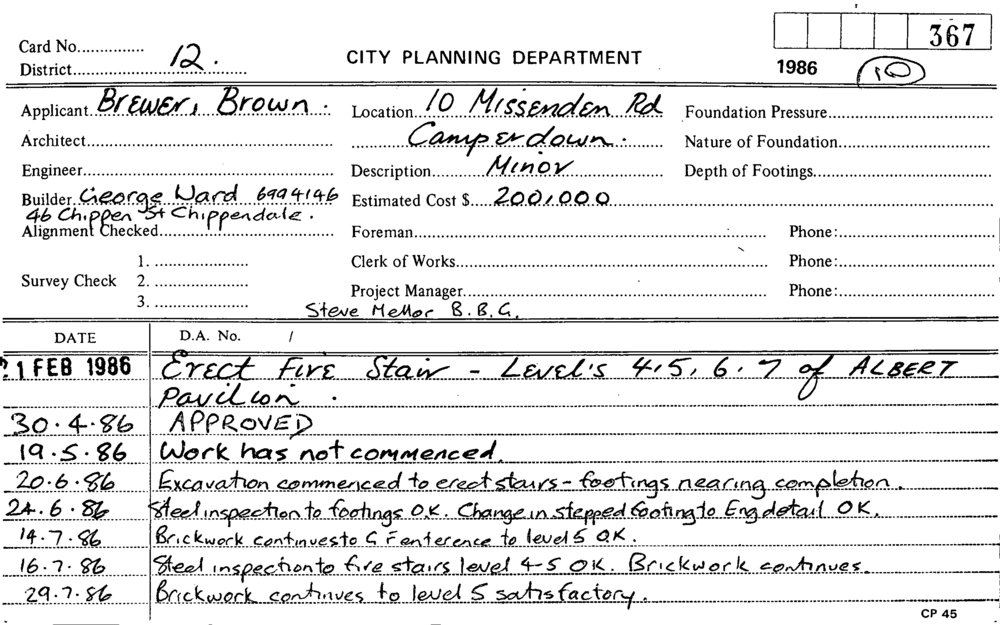 367
Card No...............
District............ 12.
CITY PLANNING DEPARTMENT
1986 10
Applicant Brewer, Brown.
Location 10 Missenden Rd
Foundation Pressure
Architect
Camperdown.
Nature of Foundation
Engineer
Description Minor
Depth of Footings
Builder George Ward 6994146
Estimated Cost $ 200,000
46 Chippen St Chippendale.
Alignment Checked
Foreman
Phone:
Survey Check
1.
2.
3.
Clerk of Works
Phone:
Project Manager
Phone:
Steve Mellor B.B.C.
DATE D.A. No. /
21 FEB 1986 Erect Fire Stair - Level's 4,5,6.7 of ALBERT
Pavilion.
30.4.86 APPROVED
19.5.86 Work has not commenced.
20.6.86 Excavation commenced to erect stairs - footings nearing completion.
24.6.86 Steel inspection to footings O.K. Change in stepped footing to Eng detail OK.
14.7.86 Brickwork continues to G F to level 5 OK.
16.7.86 Steel inspection to fire stairs level 4-5 OK. Brickwork continues.
29.7.86 Brickwork continues to level 5 satisfactory.
CP 45